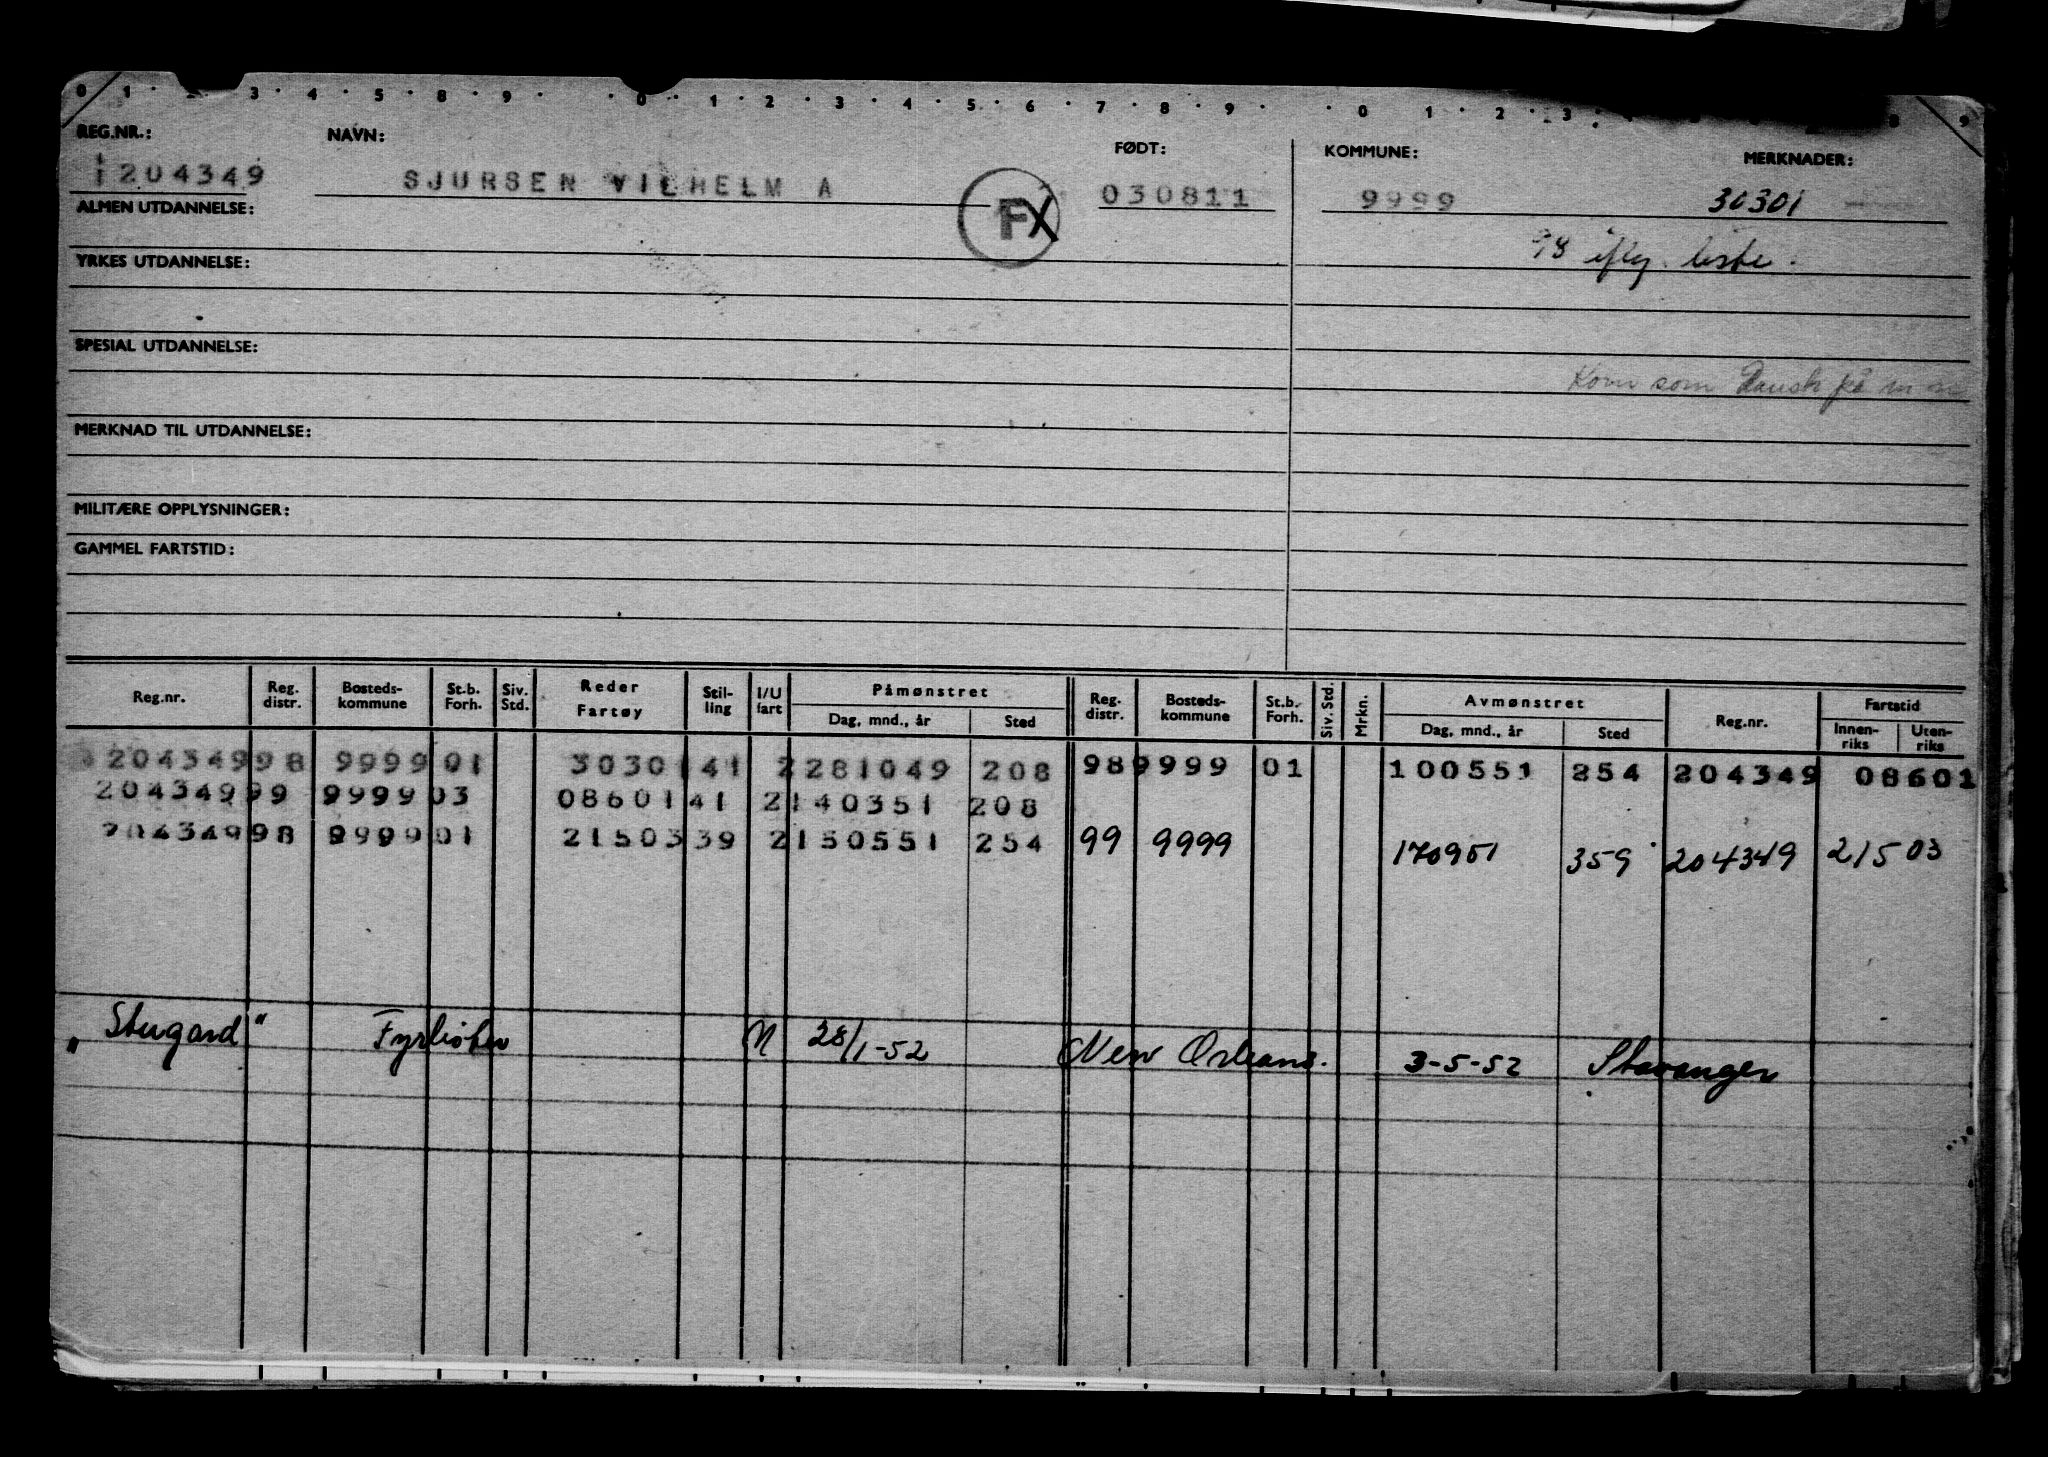 0 1 3 4 5 8 9 0 1 2 3 4 5 6 7 8 9 0 1 2 3 8 9
REG.NR.: NAVN: FØDT: KOMMUNE: MERKNADER:
1204349 SJURSEN VILHELM A FX 030811 9999 30301
ALMEN UTDANNELSE:
98 iflg. liste.
YRKES UTDANNELSE:
SPESIAL UTDANNELSE:
Kom som Dansk på
MERKNAD TIL UTDANNELSE:
MILITÆRE OPPLYSNINGER:
GAMMEL FARTSTID:
Reg.nr. Reg. distr. Bosteds-kommune St.b. Forh. Siv. Std. Reder Fartøy Stil-ling I/U fart Påmønstret Dag, mnd., år Sted Reg. distr. Bosteds-kommune St.b. Forh. Siv. Std. Mrkn. Avmønstret Dag, mnd., år Sted Reg.nr. Fartstid Innen-riks Uten-riks
204349 98 9999 01 30301 41 2 281049 208 98 9999 01 100551 254 204349 08601
204349 99 9999 03 08601 41 2 140351 208
204349 98 9999 01 21503 39 2 150551 254 99 9999 170951 359 204349 21503
"Stugard" Fyrbøter N 28/1-52 New Orleans. 3-5-52 Stavanger